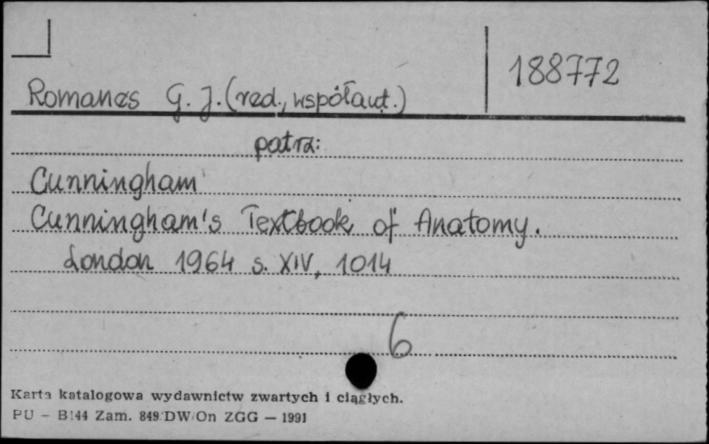 188772
Romanes G. J. (red., współaut.)
patrz:
Cunningham
Cunningham's Textbook of Anatomy.
London 1964 s. XIV, 1014
6
Karta katalogowa wydawnictw zwartych i ciągłych.
PU - B144 Zam. 849/DW/On ZGG - 1991